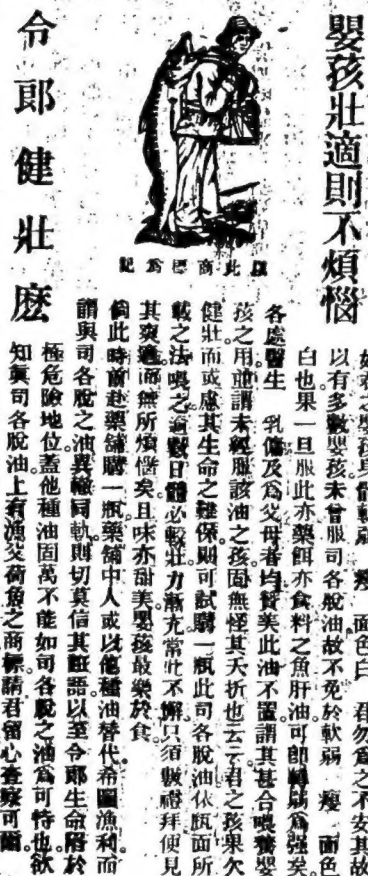 嬰孩壯適則不煩惱
如君之嬰孩身體軟弱 瘦 面色白 君勿爲之不安其故
以有多數嬰孩未曾服司各脫油故不免於軟弱 瘦 面色
白也果一旦服此亦藥餌亦食料之魚肝油可卽轉弱爲强矣
各處醫生 乳傭及爲父母者均賛美此油不置謂其甚合喂養嬰
孩之用並謂未經服該油之孩固無怪其夭折也云云君之孩果欠
健壯而或慮其生命之難保則可試購一瓶此司各脫油依瓶面所
載之法喂之過數日體必較壯力漸充當此不懈只須數禮拜便見
其爽適而無所煩惱矣且味亦甜美嬰孩最樂於食
倘此時前赴藥舖購一瓶藥舖中人或以他種油替代希圖漁利而
謂與司各脫之油異轍同軌則切莫信其誑語以至令郎生命陷於
極危險地位蓋他種油固萬不能如司各脫之油爲可恃也欲
知眞司各脫油上有漁父荷魚之商標請君留心查察可爾
以此商標爲記
令郎健壯麽